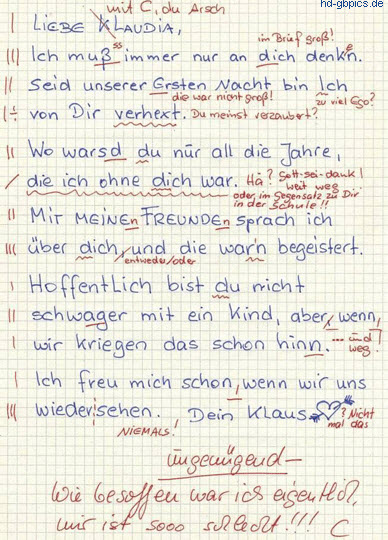 hd-gbpics.de
mit C, du Arsch
Liebe Klaudia,
im Brief groß!
Ich muß immer nur an dich denk'n.
ss
e
Seid unserer Ersten Nacht bin Ich
die war nicht groß!
zu viel Ego?
von Dir verhext. Du meinst verzaubert?
Wo warsd du nür all die Jahre,
die ich ohne dich war. Hä? Gott-sei-dank!
weit weg...
oder im Gegensatz zu Dir
in der Schule!!
Mit meinen Freunden sprach ich
über dich, und die war'n begeistert.
entweder/oder
Hoffentlich bist du nicht
schwager mit ein Kind, aber, wenn,
wir kriegen das schon hinn. ... und
weg!
Ich freu mich schon, wenn wir uns
wiedersehen. Dein Klaus ? Nicht
mal das
NIEMALS!
ungenügend –
Wie besoffen war ich eigentlich,
mir ist sooo schlecht!!! C